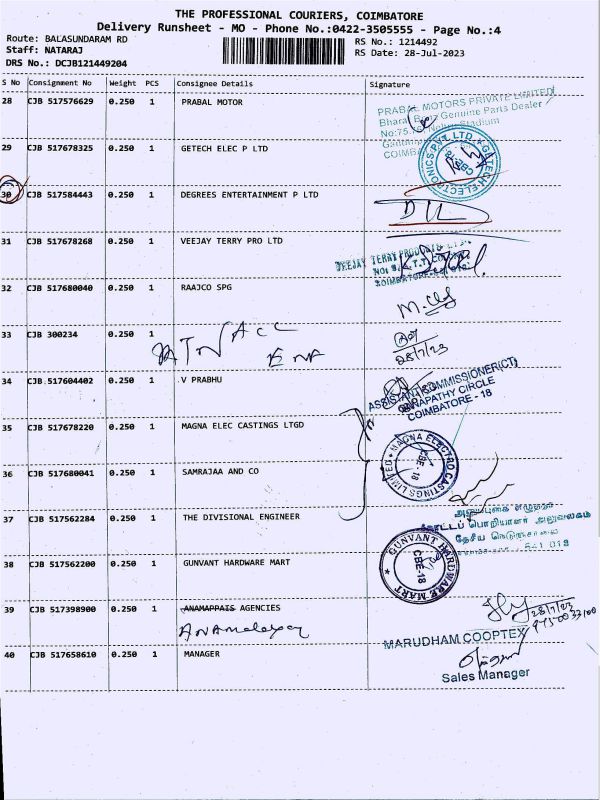 THE PROFESSIONAL COURIERS, COIMBATORE
Delivery Runsheet - MO - Phone No.:0422-3505555 - Page No.:4
Route: BALASUNDARAM RD
RS No.: 1214492
Staff: NATARAJ
RS Date: 28-Jul-2023
DRS No.: DCJB121449204
S No Consignment No Weight PCS Consignee Details Signature
28 CJB 517576629 0.250 1 PRABAL MOTOR
PRABAL MOTORS PRIVATE LIMITED
Bharat Benz Genuine Parts Dealer
No:75, Nehru Stadium
COIMB
29 CJB 517678325 0.250 1 GETECH ELEC P LTD
GETECH ELECTRONICS PVT LTD
30 CJB 517584443 0.250 1 DEGREES ENTERTAINMENT P LTD
31 CJB 517678268 0.250 1 VEEJAY TERRY PRO LTD
VEEJAY TERRY PRODUCTS LTD.
COIMBATORE
32 CJB 517680040 0.250 1 RAAJCO SPG
33 CJB 300234 0.250 1
28/7/23
34 CJB 517604402 0.250 1 V PRABHU
ASSISTANT COMMISSIONER(CT)
GANAPATHY CIRCLE
COIMBATORE - 18
35 CJB 517678220 0.250 1 MAGNA ELEC CASTINGS LTGD
MAGNA ELECTRO CASTINGS LIMITED
CBE - 18
36 CJB 517680041 0.250 1 SAMRAJAA AND CO
37 CJB 517562284 0.250 1 THE DIVISIONAL ENGINEER
கோட்டப் பொறியாளர் அலுவலகம்
தேசிய நெடுஞ்சாலை
38 CJB 517562200 0.250 1 GUNVANT HARDWARE MART
GUNVANT HARDWARE MART
CBE-18
39 CJB 517398900 0.250 1 ANAMAPPAIS AGENCIES
28/7/23
MARUDHAM COOPTEX
40 CJB 517658610 0.250 1 MANAGER
Sales Manager